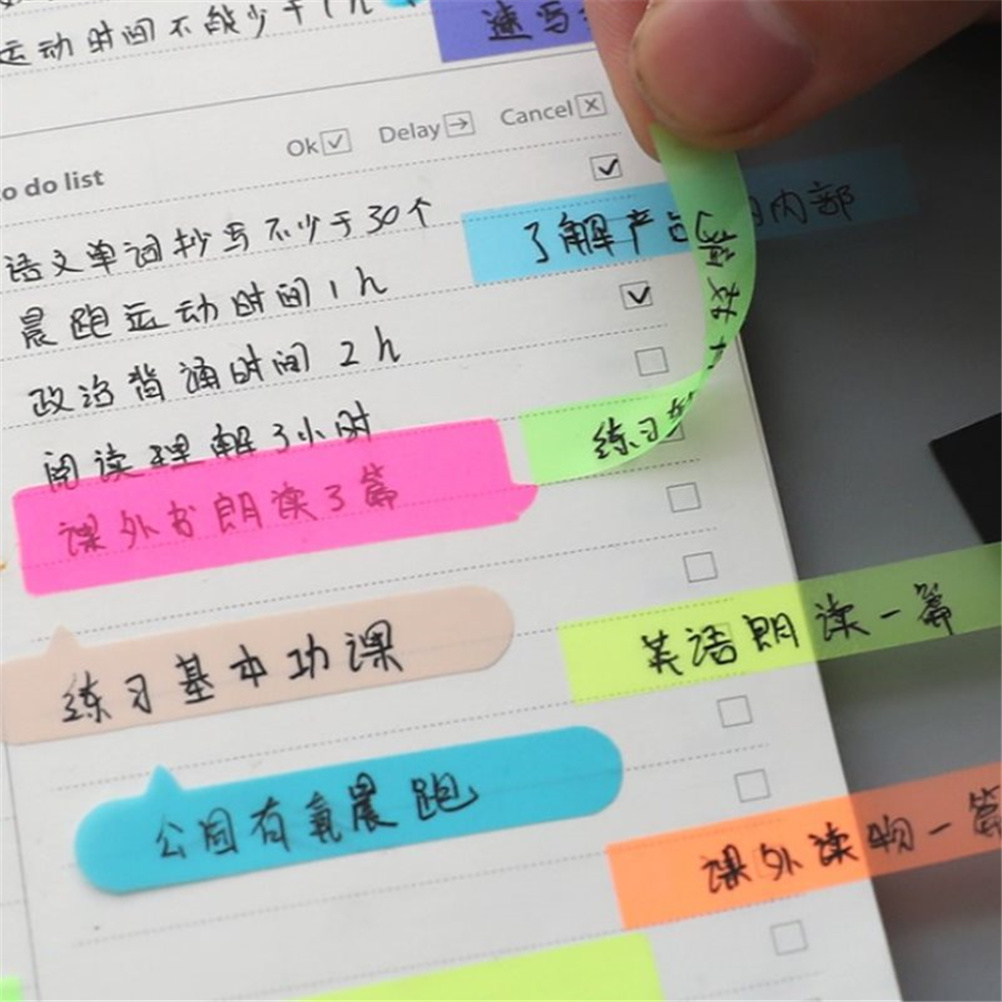 运动时间不能少于1h
速写
Ok Delay Cancel
to do list
语文单词抄写不少于30个
了解产品 内部
晨跑运动时间1h
政治背诵时间2h
阅读理解3小时
练习
课外书朗读3篇
英语朗读一篇
练习基本功课
课外读物一篇
公园有氧晨跑